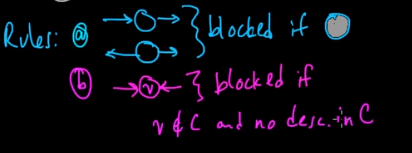 Rules: ⓐ →○→ ←○→ } blocked if
ⓑ →ⓥ← } blocked if
v ∉ C and no desc. in C